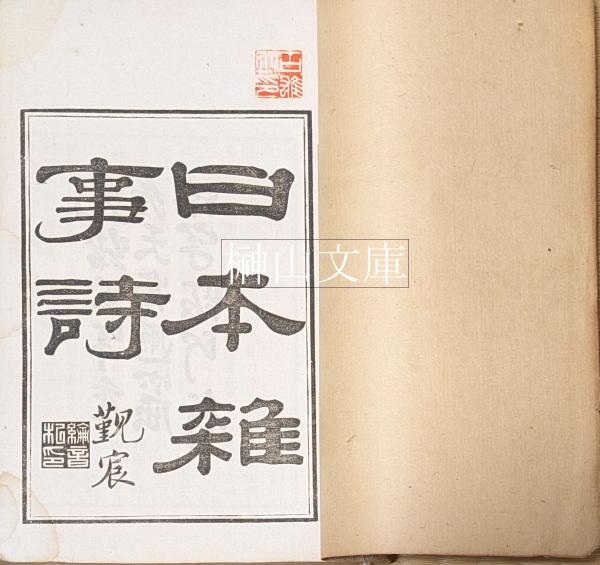 日本雜
事詩
覲宸
榊山文庫